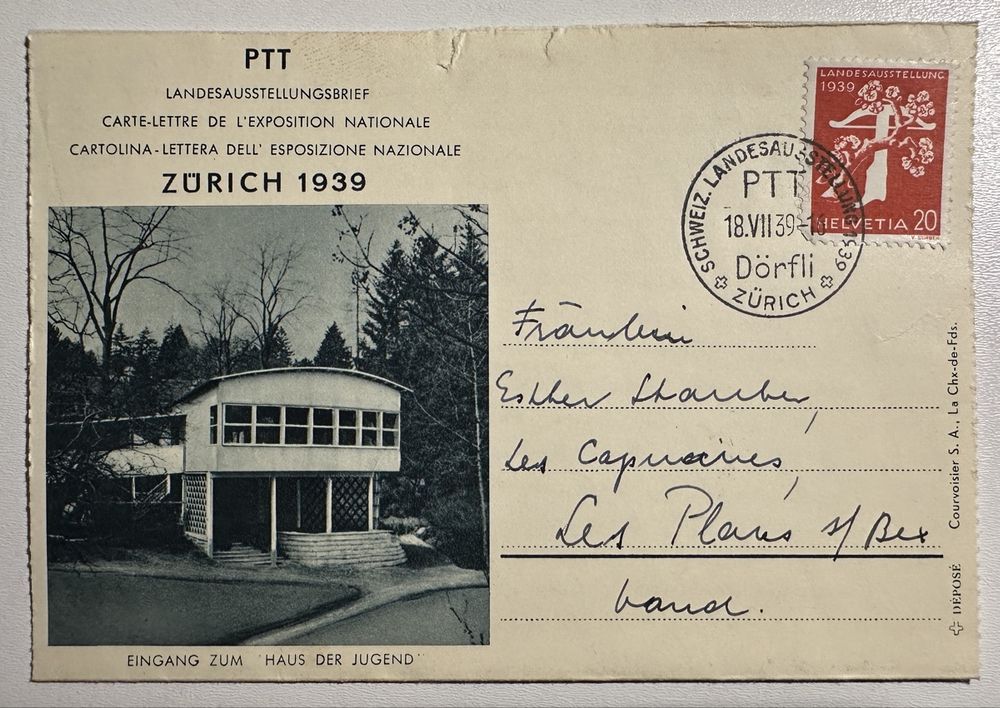 PTT
LANDESAUSSTELLUNGSBRIEF
CARTE-LETTRE DE L'EXPOSITION NATIONALE
CARTOLINA-LETTERA DELL' ESPOSIZIONE NAZIONALE
ZÜRICH 1939
LANDESAUSSTELLUNG
1939
HELVETIA 20
SCHWEIZ. LANDESAUSSTELLUNG 1939
PTT
18.VII39
Dörfli
ZÜRICH
Fräulein
Esther
Les
Les Plans s/Bex
Vaud.
EINGANG ZUM 'HAUS DER JUGEND'
DÉPOSÉ Courvoisier S. A., La Chx-de-Fds.